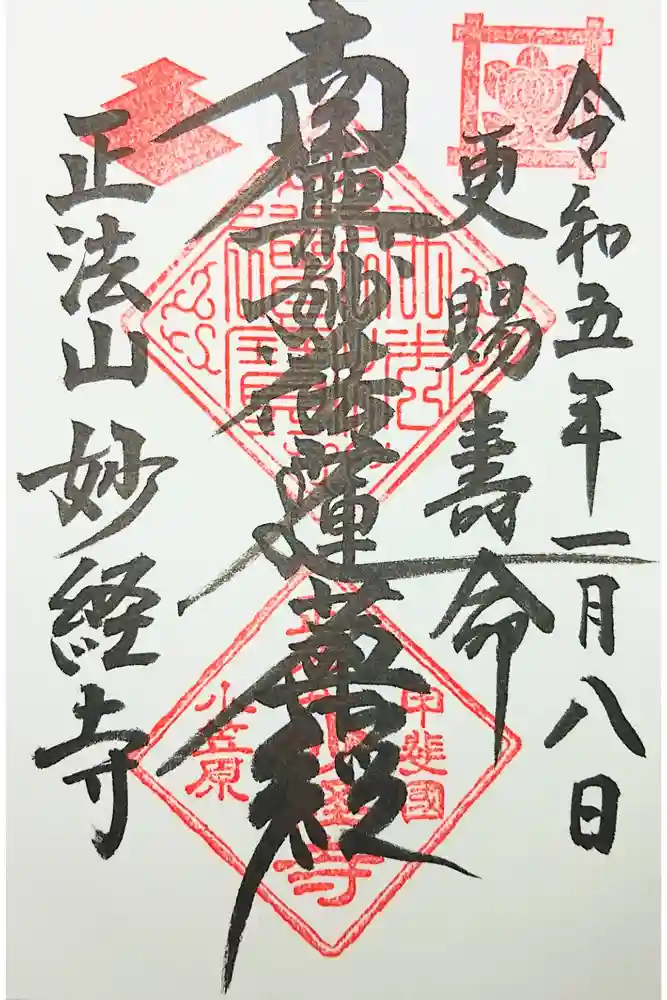 令和五年一月八日
更賜寿命
南無妙法蓮華経
正法山 妙経寺
甲斐國
小笠原